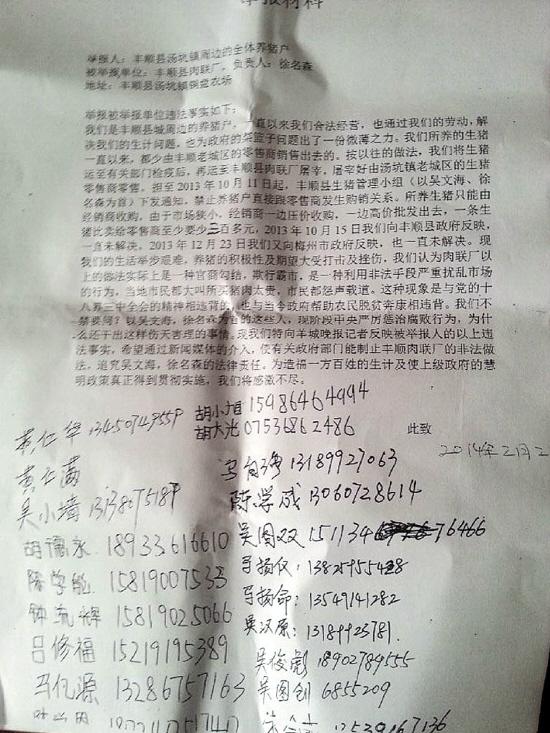 举报材料
举报人：丰顺县汤坑镇周边的全体养猪户
被举报单位：丰顺县肉联厂，负责人：徐名森
地址：丰顺县汤坑镇铜盘农场
举报被举报单位违法事实如下：
我们是丰顺县城周边的养猪户，一直以来我们合法经营，也通过我们的劳动，解
决我们的生计问题，也为政府的菜篮子问题出了一份微薄之力。我们所养的生猪
一直以来，都少由丰顺老城区的零售商销售出去的。按以往的做法，我们将生猪
运至有关部门检疫后，再运至丰顺县肉联厂屠宰，屠宰好由汤坑镇老城区的生猪
零售商零售。担至2013年10月11日起，丰顺县生猪管理小组（以吴文海、徐
名森为首）下发通知，禁止养猪户直接跟零售商发生购销关系。所养生猪只能由
经销商收购，由于市场狭小，经销商一边压价收购，一边高价批发出去，一条生
猪比卖给零售商至少要少三百多元，2013年10月15日我们向丰顺县政府反映，
一直未解决。2013年12月23日我们又向梅州市政府反映，也一直未解决。现
我们的生活举步艰难，养猪的积极性及期望大受打击及挫伤，我们认为肉联厂以
上的做法实际上是一种官商勾结，欺行霸市，是一种利用非法手段严重扰乱市场
的行为，当地市民都大叫所买猪肉太贵，市民都怨声载道。这种现象是与党的十
八界三中全会的精神相违背的，也与当今政府帮助农民脱贫奔康相违背。我们不
禁要问？以吴文海，徐名森为首的这些人，现阶段中央严厉惩治腐败行为，为什
么还干出这样伤天害理的事情。现我们特向羊城晚报记者反映被举报人的以上违
法事实，希望通过新闻媒体的介入，使有关政府部门能制止丰顺肉联厂的非法做
法，追究吴文海，徐名森的法律责任，为造福一方百姓的生计及使上级政府的慧
明政策真正得到贯彻实施，我们将感激不尽。
胡小旭 15986464994
黄仁华 13450749559
胡大光 07536862486
此致
2014年2月2
黄仁
马自 13189927063
吴小靖
陈学成 13060728614
胡 永 18933616610
吴图双 151134 76466
陈学能 15819007533
马扬仪：
钟 辉 15819025066
马扬命：13549141282
吴汉 ：13189923781.
吕修福 15219195389
吴俊彪 18902789555
马亿源 13286757163
吴图创 6855209